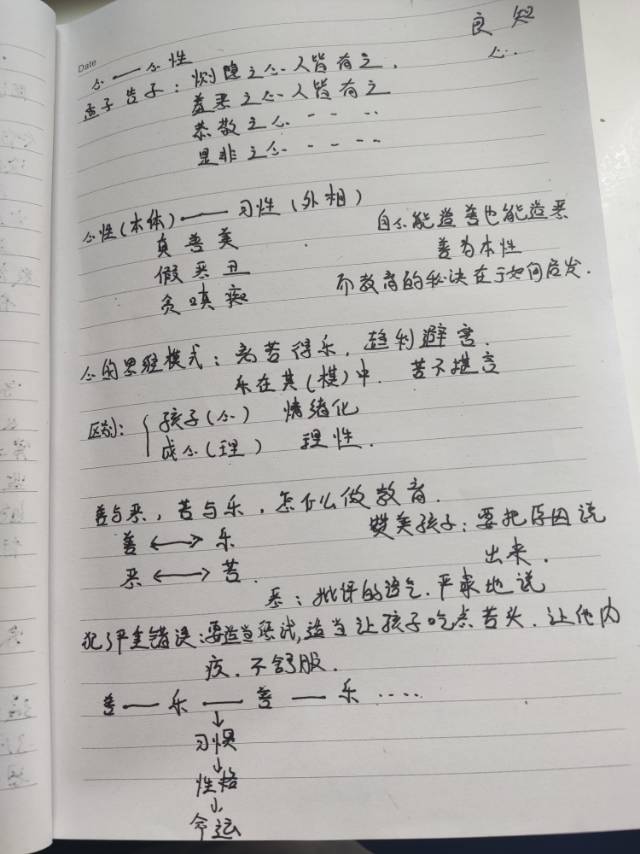 良知
Date
心 — 心性
心.
孟子告子：恻隐之心人皆有之.
羞恶之心人皆有之
恭敬之心 - - - -
是非之心 - - - -
心性(本体) — 习性(外相)
真善美
自心能造善也能造恶
假恶丑
善为本性
贪嗔痴
而教育的秘诀在于如何启发.
心的思维模式：离苦得乐, 趋利避害.
乐在其(棋)中. 苦不堪言
区别： { 孩子(心) 情绪化
成人(理) 理性.
善与恶, 苦与乐, 怎么做教育.
善 ⟷ 乐
赞美孩子：要把原因说
出来.
恶 ⟷ 苦.
恶：批评的语气. 严肃地说
犯了严重错误：要适当惩戒, 适当让孩子吃点苦头. 让他内
疚. 不舒服.
善 — 乐 — 善 — 乐 ....
↓
习惯
↓
性格
↓
命运